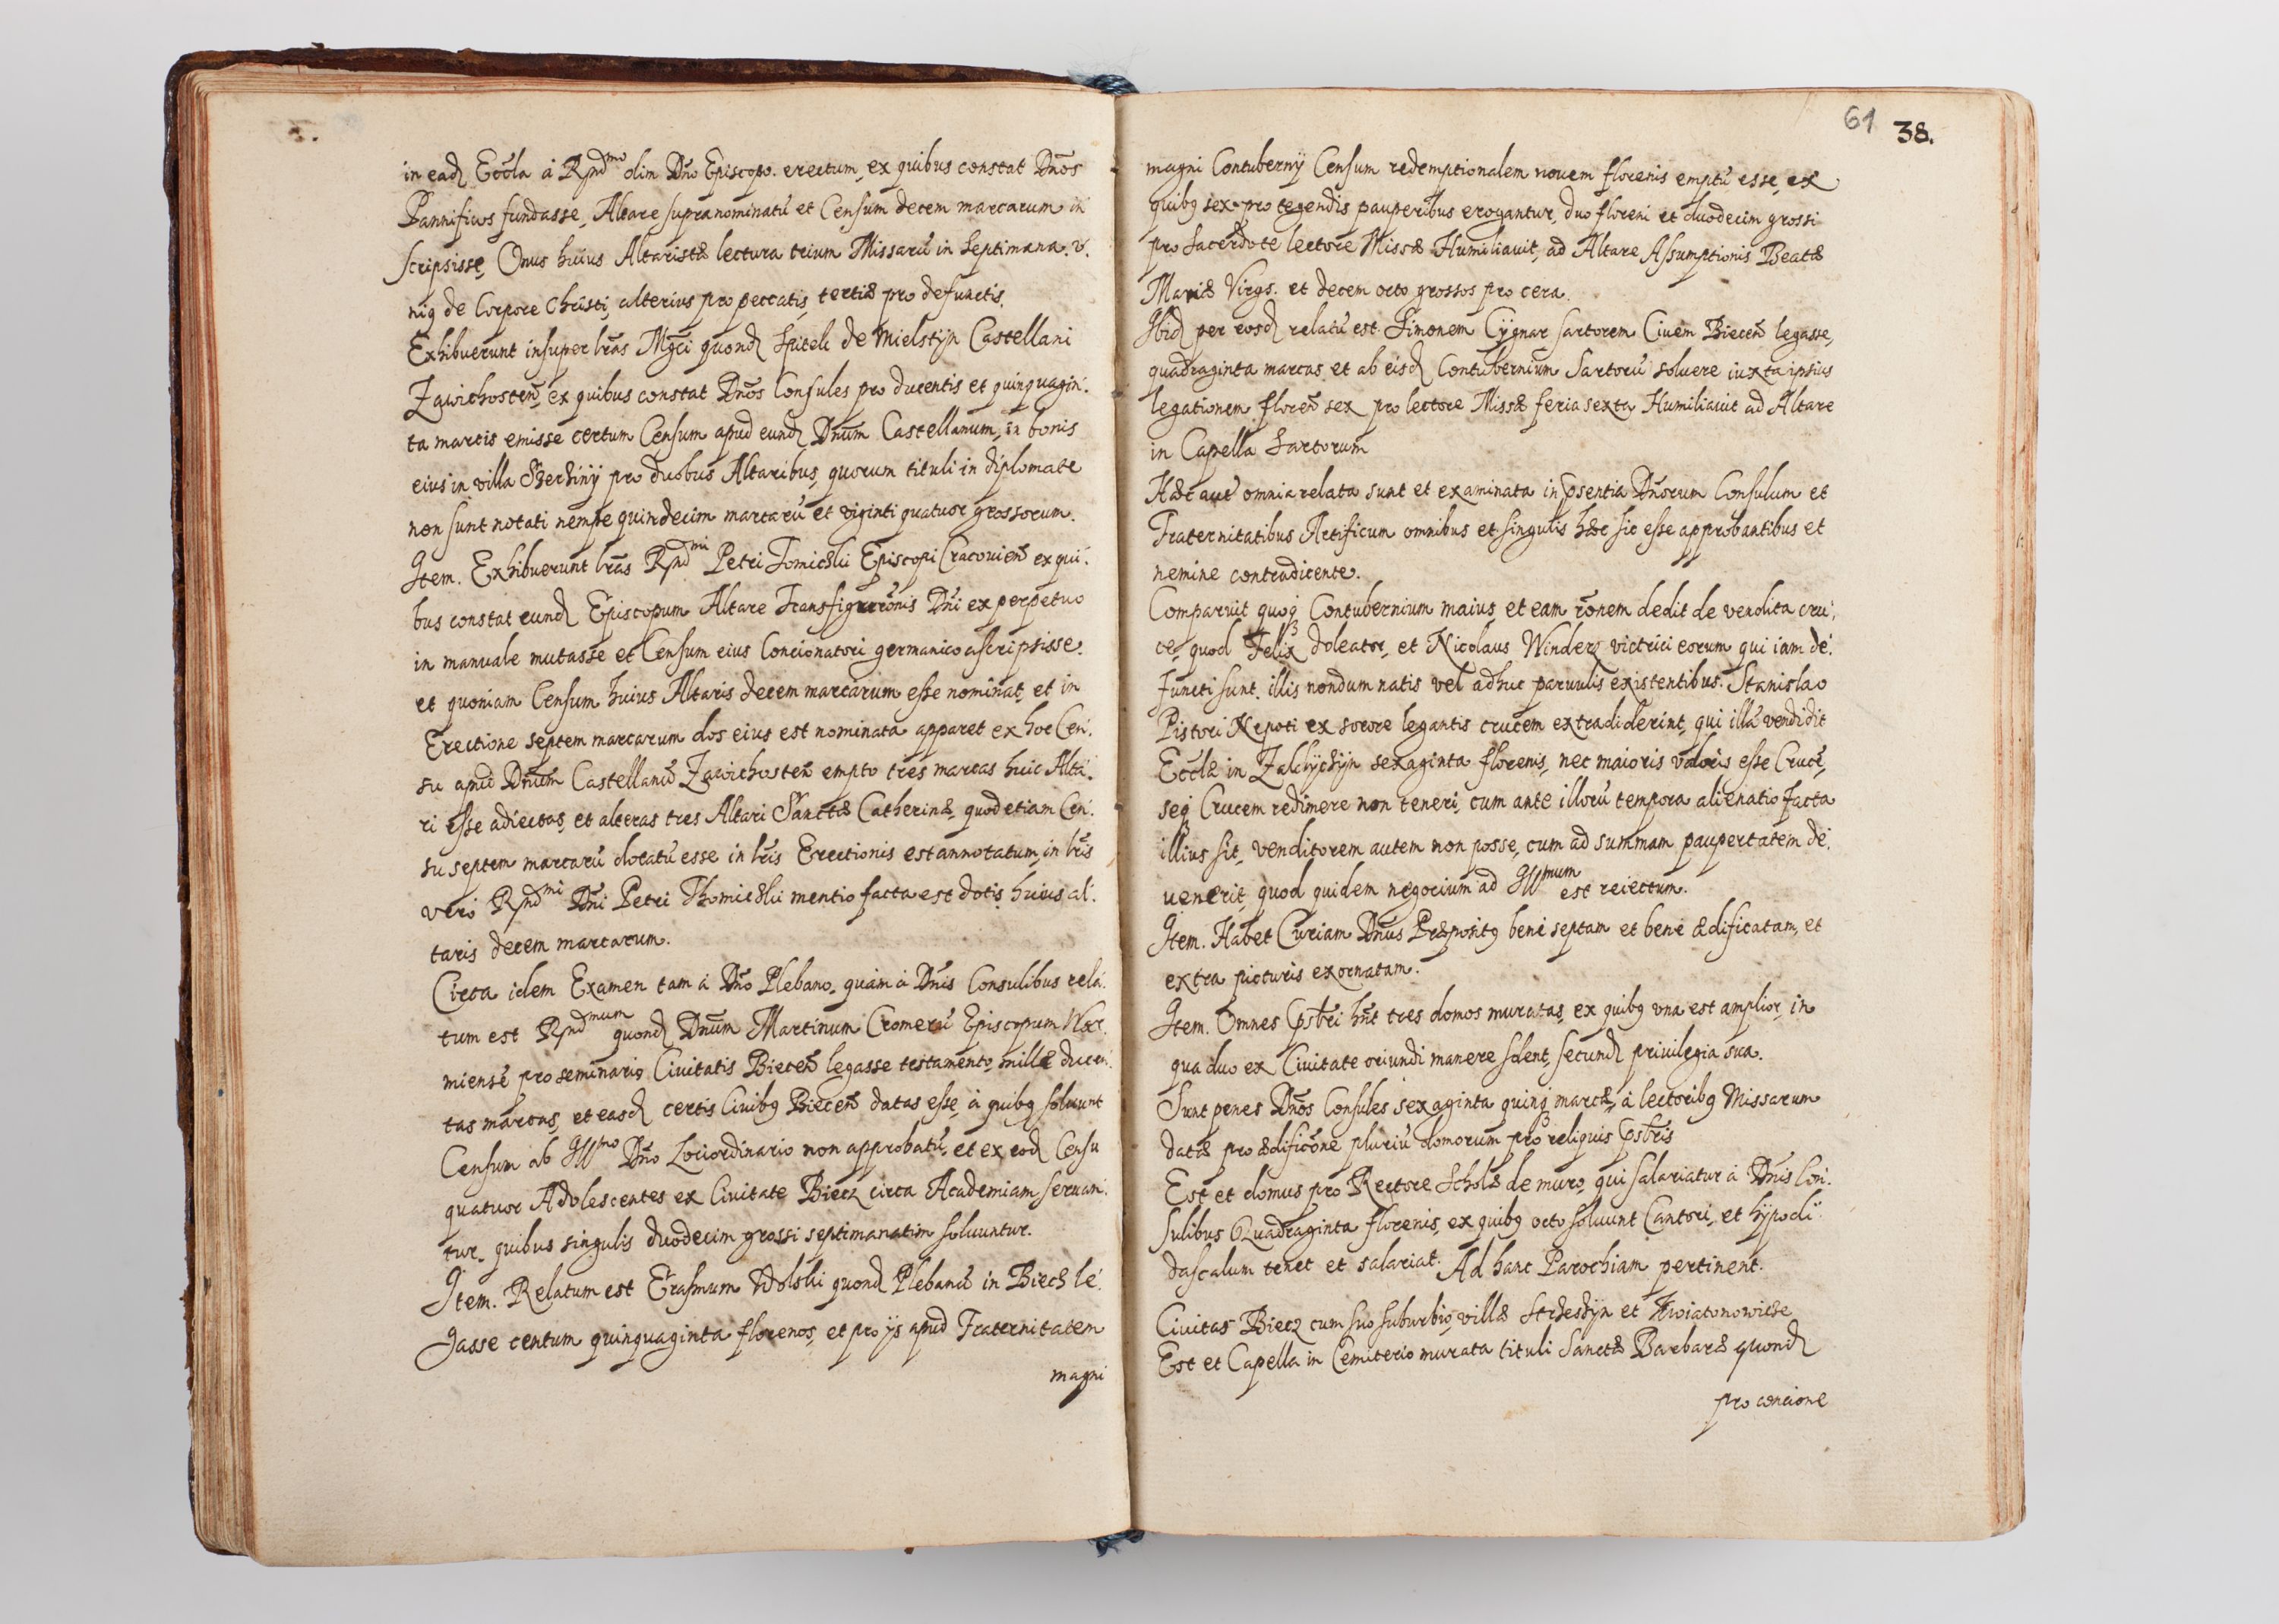 in ead Eccla à Rndmo olim Dno Episcopo. erectum, ex quibus constat Dnos
Pannifices fundasse, Altare supranominatũ et Censum decem marcarum in
scripsisse, Onus huius Altaristæ lectura trium Missarũ in Septimana. V.
niq de Corpore Christi, alterius pro peccatis, tertiæ pro defunctis.
Exhibuerunt insuper lras Mgci quond Spitek de Mielstijn Castellani
Zawichosteñ, ex quibus constat Dnos Consules pro ducentis et quinquagin:
ta marcis emisse certum Censum apud eund Dnum Castellanum, in bonis
eius in villa pro duobus Altaribus, quorum tituli in diplomate
non sunt notati nempe quindecim marcarũ et viginti quatuor grossorum.
Item. Exhibuerunt lras Rndmi Petri Tomiczki Episcopi Cracovieñ ex qui:
bus constat eund Episcopum Altare Transfigurõnis Dni ex perpetuo
in manuale mutasse et Censum eius Concionatori germanico ascripsisse.
et quoniam Censum huius Altaris decem marcarum esse nominat, et in
Erectione septem marcarum dos eius est nominata apparet ex hoc Cen:
su apud Dnum Castellanũ Zawichosteñ empto tres marcas huic Alta:
ri esse adiectas, et alteras tres Altari Sanctæ Catherinæ, quod etiam Cen:
su septem marcarũ dotatũ esse in lris Erectionis est annotatum, in lris
verò Rndmi Dni Petri Thomiczki mentio facta est dotis huius al:
taris decem marcarum.
Circa idem Examen tam à Dno Plebano, quàm à Dnis Consulibus rela:
tum est Rndmum quond Dnum Martinum Cromerũ Episcopum War:
miensẽ pro seminario Civitatis Bieceñ legasse testamento, mille ducen:
tas marcas, et easd certis Civibq Bieceñ datas esse, à quibq soluunt
Censum ab Illmo Dno Lociordinario non approbatũ, et ex eod Censu
quatuor Adolescentes ex Civitate Biecz circa Academiam seruan:
tur, quibus singulis duodecim grossi septimanatim soluuntur.
Item. Relatum est Erasmum Wolski quond Plebanũ in Biecz le:
gasse centum quinquaginta florenos, et pro ijs apud Fraternitatem
magni
61 38.
magni Contubernij Censum redemptionalem nouem florenis emptũ esse, ex
quibq sex pro tegendis pauperibus erogantur, duo floreni et duodecim grossi
pro Sacerdote lectore Missæ Humiliauit, ad Altare Assumptionis Beatæ
Mariæ Virgs. et decem octo grossos pro cera.
Ibid per eosd relatũ est. Simonem Cygnar sartorem Ciuem Bieceñ legasse,
quadraginta marcas et ab eisd Contubernium Sartorũ soluere iuxta ipsius
legationem floreñ sex pro lectore Missæ feria sexta Humiliauit ad Altare
in Capella Sartorum
Hæc aut omnia relata sunt et examinata in Psentia Dnorum Consulum et
Fraternitatibus Artificum omnibus et singulis hæc sic esse approbantibus et
nemine contradicente.
Comparuit quoq Contubernium maius, et eam rõnem dedit de vendita cru:
ce, quod Felix doleator, et Nicolaus Winderz victrici eorum qui iam de:
functi sunt, illis nondum natis vel adhuc paruulis existentibus. Stanislao
Pistori Nepoti ex sorore legantis crucem extradiderint, qui illã vendidit
Ecclæ in Zaklyczyn sexaginta florenis, nec maioris valoris esse Crucẽ,
seq Crucem redimere non teneri, cum ante illorũ tempora alienatio facta
illius sit, venditorem autem non posse, cum ad summam paupertatem de:
uenerit, quod quidem negocium ad Illmum est reiectum.
Item. Habet Curiam Dnus Præpositq bene septam et bene ædificatam, et
extra picturis exornatam.
Item. Omnes Psbri hnt tres domos muratas, ex quibq vna est amplior, in
qua duo ex Ciuitate oriundi manere solent, secund privilegia sua.
Sunt penes Dnos Consules sexaginta quinq marcæ, à lectoribq Missarum
datæ pro ædificõne pluriũ domorum pro reliquis Psbris
Est et domus pro Rectore Scholæ de muro, qui salariatur à Dnis Con:
sulibus Quadraginta florenis, ex quibq octo soluunt Cantori, et hypodi:
dascalum tenet et salariat. Ad hanc Parochiam pertinent.
Ciuitas Biecz cum suo suburbio, villæ Strzeszyn et Kwiatonowicze
Est et Capella in Cemiterio murata tituli Sanctæ Barbaræ quond
pro concione